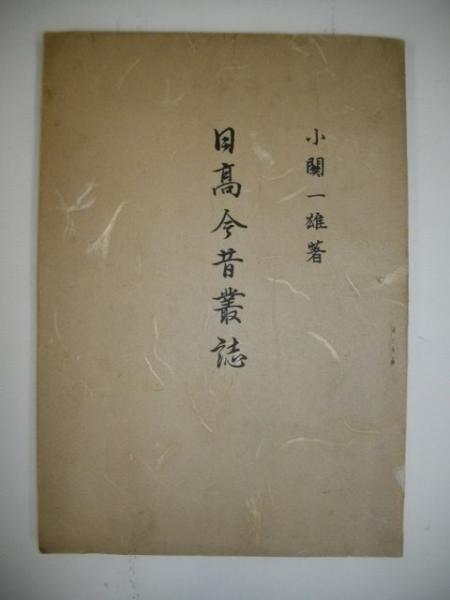 小関一雄著
日高今昔叢誌